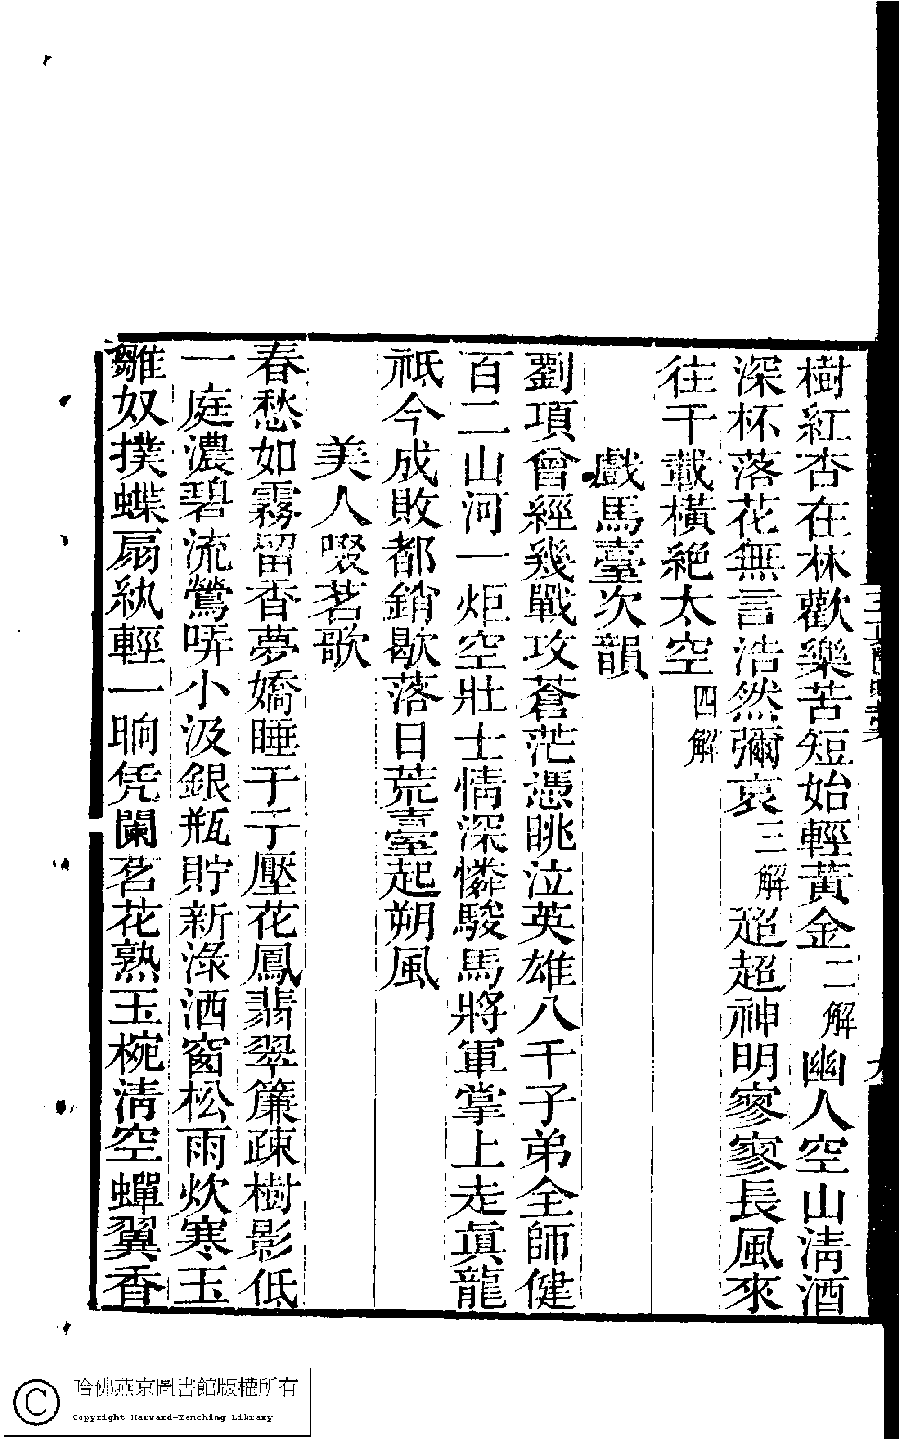 樹紅杏在林歡樂苦短始輕黃金二解幽人空山清酒
深杯落花無言浩然彌哀三解超超神明寥寥長風來
往千載橫絕太空四解
戲馬臺次韻
劉項曾經幾戰攻蒼茫憑眺泣英雄八千子弟全師健
百二山河一炬空壯士情深憐駿馬將軍掌上走眞龍
祇今成敗都銷歇落日荒臺起朔風
美人啜茗歌
春愁如霧留香夢嬌睡于于壓花鳳翡翠簾疎樹影低
一庭濃碧流鶯哢小汲銀瓶貯新淥洒窗松雨炊寒玉
雛奴撲蝶扇紈輕一晌凭闌茗花熟玉椀清空蟬翼香
哈佛燕京圖書館版權所有
Copyright Harvard-Yenching Library